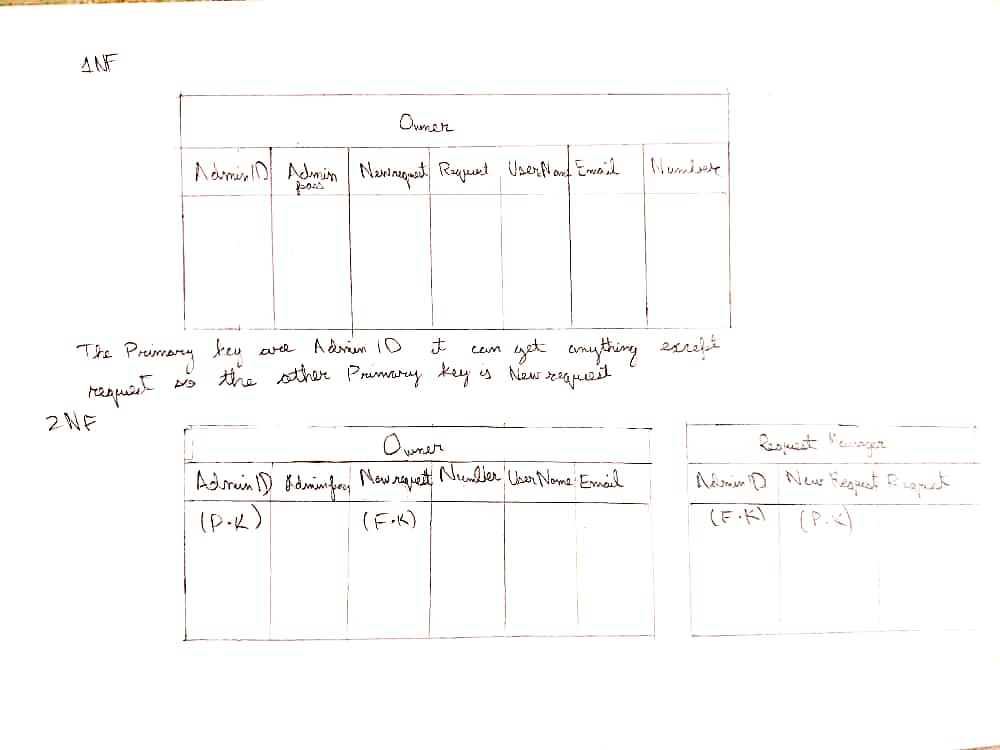 1NF
Owner
Admin ID Admin pass New request Request User Name Email Number
The Primary key are Admin ID it can get anything except
request so the other Primary key is New request
2NF
Owner
Admin ID Admin pass New request Number User Name Email
(P.K) (F.K)
Request Manager
Admin ID New Request Request
(F.K) (P.K)